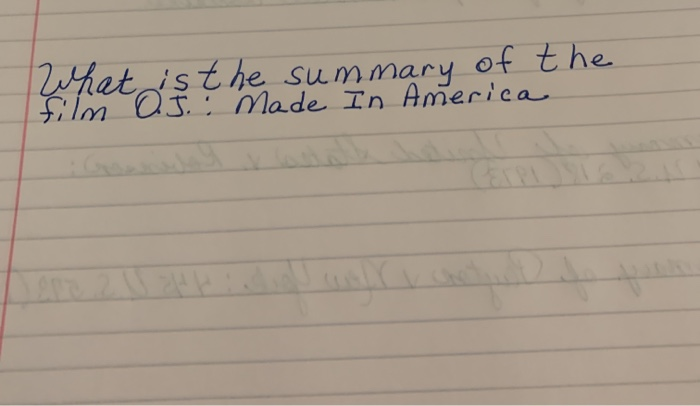 What is the summary of the
film O.J.: Made In America